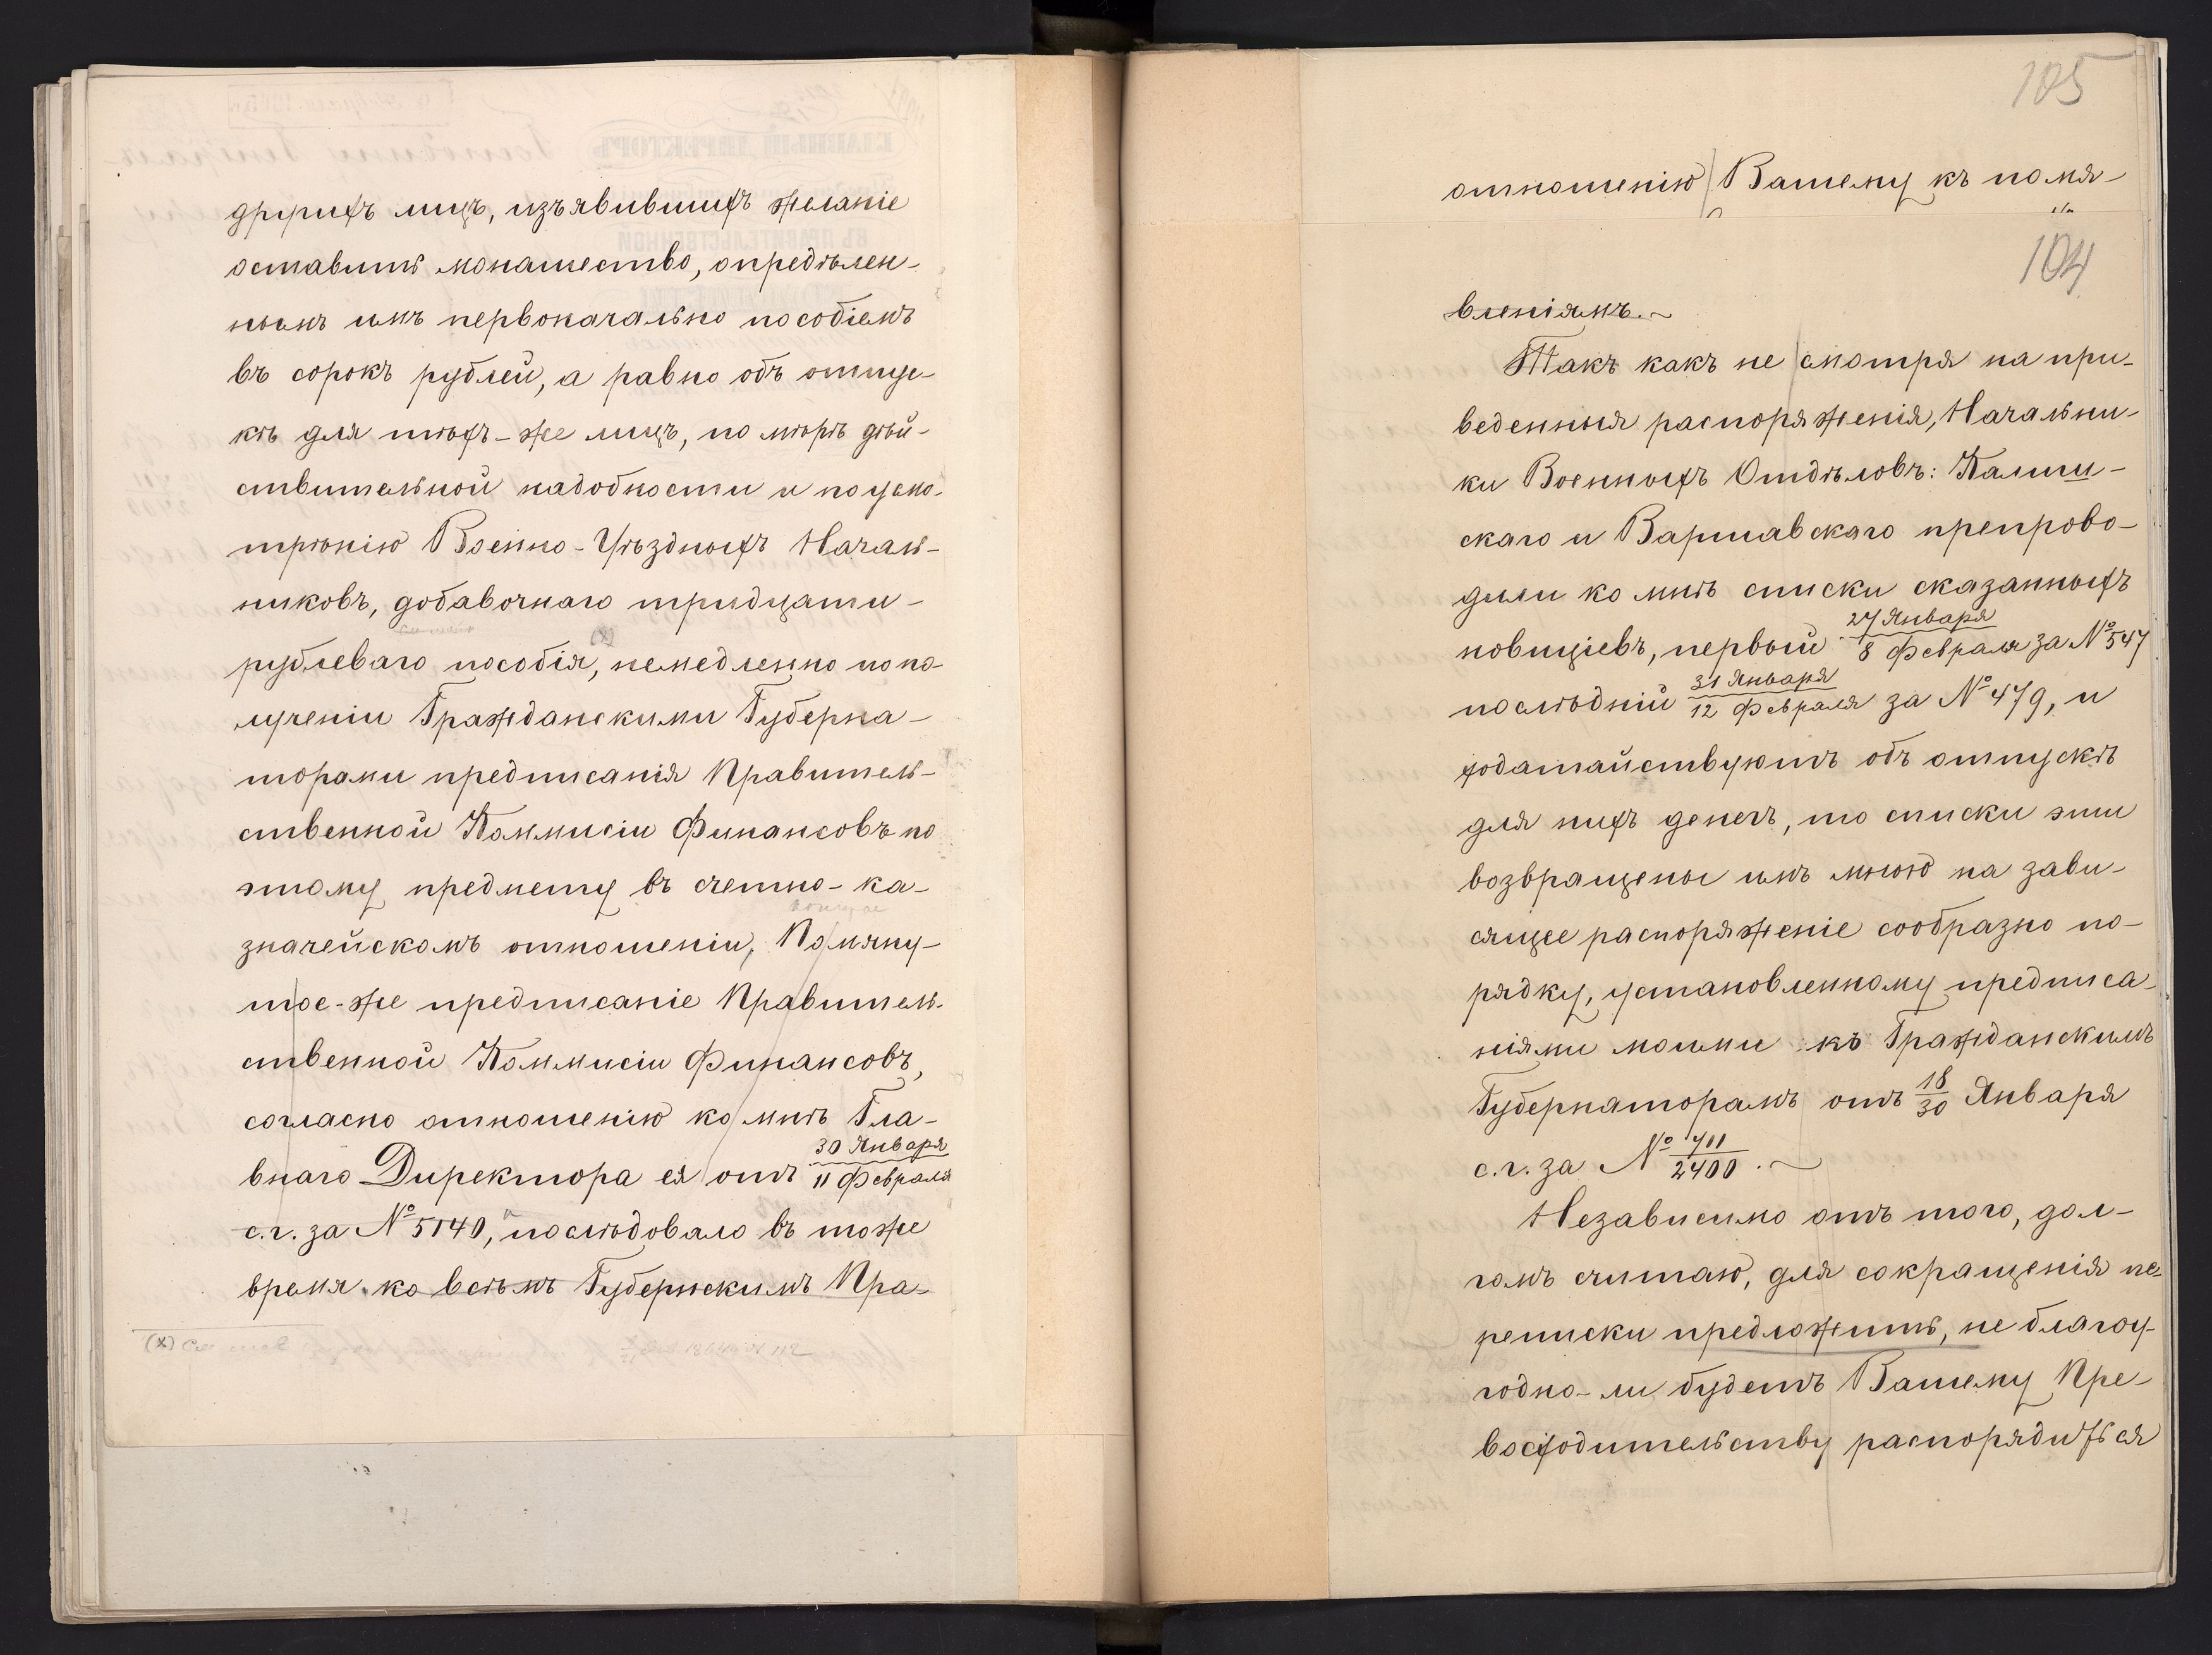 другихъ лицъ, изъявившихъ желаніе
оставить монашество, опредѣлен-
нымъ имъ первоначально пособіемъ
въ сорокъ рублей, а равно объ отпус-
кѣ для тѣхъ-же лицъ, по мѣрѣ дѣй-
ствительной надобности и по усмо-
трѣнію Военно-Уѣздныхъ Началь-
никовъ, добавочнаго тридцати-
рублеваго пособія, (x) немедленно по по-
лученіи Гражданскими Губерна-
торами предписанія Правитель-
ственной Коммисіи Финансовъ по
этому предмету въ счетно-ка-
значейскомъ отношеніи, Помяну-
тое-же предписаніе Правитель-
ственной Коммисіи Финансовъ,
согласно отношенію ко мнѣ Гла-
внаго Директора ея отъ 30 Января / 11 Февраля
с.г. за № 5140, послѣдовало въ тоже
время ко всѣмъ Губернскимъ Пра-
(x)
105
отношенію Вашему къ помя-
104
вленіямъ.~
Такъ какъ не смотря на при-
веденныя распоряженія, Начальни-
ки Военныхъ Отдѣловъ: Калиш-
скаго и Варшавскаго препрово-
дили ко мнѣ списки сказанныхъ
новиціевъ, первый 27 Января / 8 Февраля за № 547
послѣдній 31 Января / 12 Февраля за № 479, и
ходатайствуютъ объ отпускѣ
для нихъ денегъ, то списки эти
возвращены имъ мною на зави-
сящее распоряженіе сообразно по-
рядку, установленному предписа-
ніями моими къ Гражданскимъ
Губернаторамъ отъ 18/30 Января
с.г. за № 711/2400.~
Независимо отъ того, дол-
гомъ считаю, для сокращенія пе-
реписки предложить, не благоу-
годно-ли будетъ Вашему Пре-
восходительству распорядиться